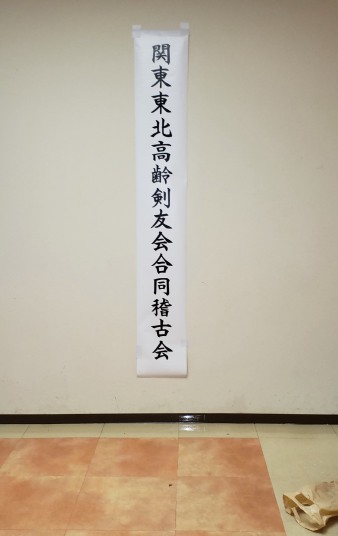 関東東北高齢剣友会合同稽古会